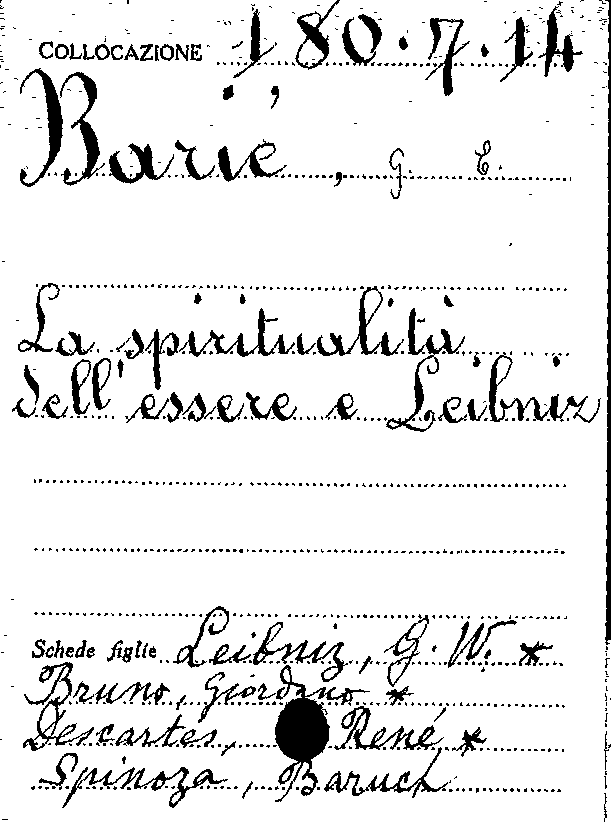 COLLOCAZIONE 180.7.14
Barié, G. E.
La spiritualità
dell'essere e Leibniz
Schede figlie Leibniz, G. W. *
Bruno, Giordano *
Descartes, René *
Spinoza, Baruch